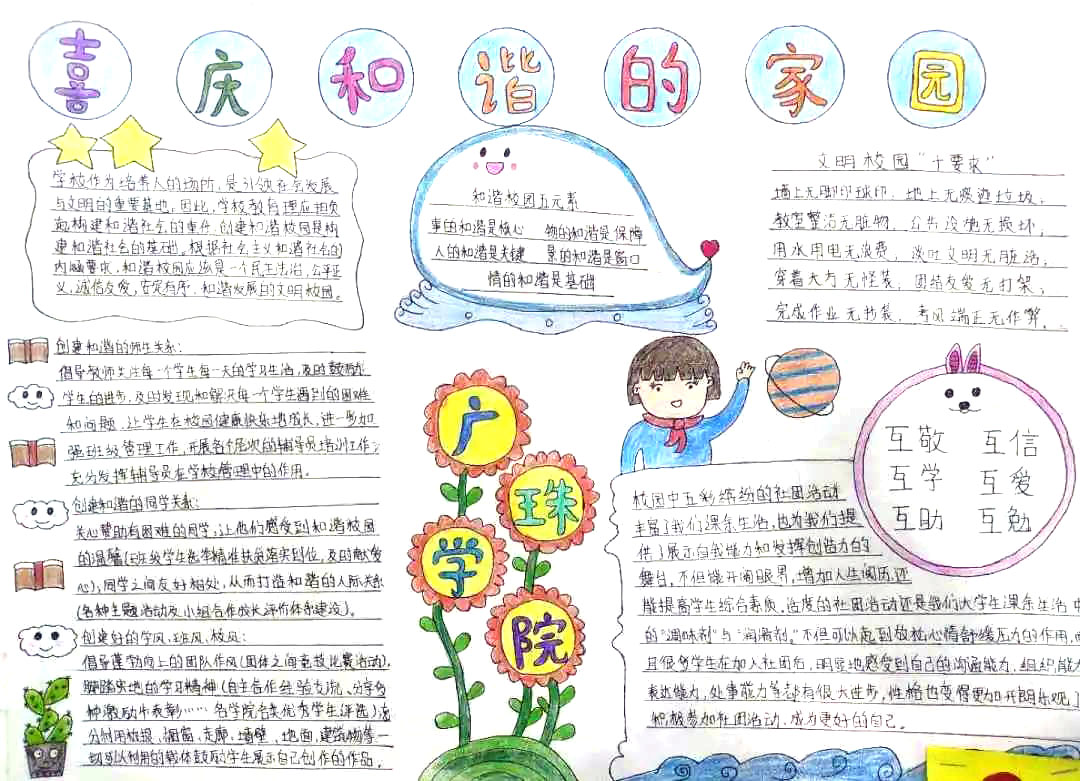 喜庆和谐的家园
学校作为培养人的场所,是引领社会发展
与文明的重要基地,因此,学校教育理应担负
起构建和谐社会的重任,创建和谐校园是构
建和谐社会的基础。根据社会主义和谐社会的
内涵要求,和谐校园应该是一个民主法治,公平正
义,诚信友爱,安定有序,和谐发展的文明校园。
和谐校园五元素
事的和谐是核心 物的和谐是保障
人的和谐是关键 景的和谐是窗口
情的和谐是基础
文明校园“十要求”
墙上无脚印球印;地上无痰迹垃圾;
教室整洁无脏物,公告设施无损坏;
用水用电无浪费,谈吐文明无脏话;
穿着大方无怪装;团结友爱无打架;
完成作业无抄袭,考风端正无作弊.
创建和谐的师生关系:
倡导教师关注每一个学生每一天的学习生活,及时鼓励
学生的进步,及时发现和解决每一个学生遇到的困难
和问题,让学生在校园健康快乐地成长,进一步加
强班级管理工作,开展各个层次的辅导员培训工作;
充分发挥辅导员在学校管理中的作用。
创建和谐的同学关系:
关心赞助有困难的同学,让他们感受到和谐校园
的温馨(班级学生临学精准扶贫落实到位,及时献爱
心),同学之间友好相处,从而打造和谐的人际关系
(各种主题活动及小组合作成长评价体系建设)。
创建好的学风,班风,校风:
倡导蓬勃向上的团队作风(团体之间竞技比赛活动),
脚踏实地的学习精神(自主合作经验交流、分享各
种激励中表彰……各学院各类优秀学生评选),充
分利用板报,橱窗,走廊,墙壁,地面,建筑物等一
切可以利用的载体鼓励学生展示自己创作的作品。
广
珠
学
院
互敬 互信
互学 互爱
互助 互勉
校园中五彩缤纷的社团活动
丰富了我们课余生活,也为我们提
供了展示自我能力和发挥创造力的
舞台,不但能开阔眼界,增加人生阅历,还
能提高学生综合素质,适度的社团活动还是我们大学生课余生活中
的“调味剂”与“润滑剂,”不但可以起到放松心情舒缓压力的作用,而
且很多学生在加入社团后,明显地感受到自己的沟通能力,组织能力
表达能力,处事能力等都有很大进步,性格也变得更加开朗乐观,
积极参加社团活动,成为更好的自己。